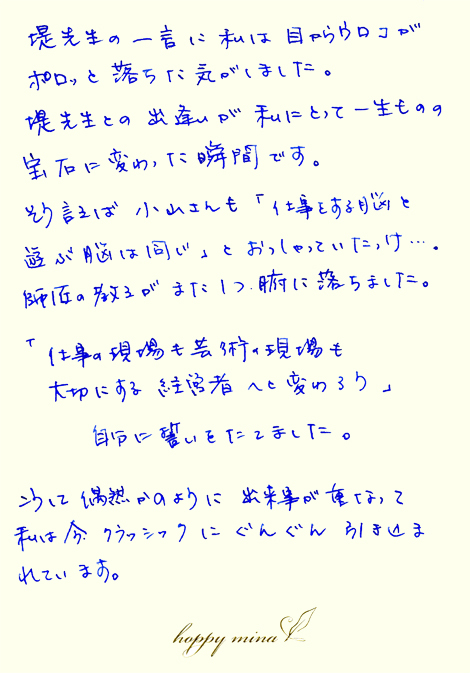 堤先生の一言に私は目からウロコが
ポロッと落ちた気がしました。
堤先生との出逢いが私にとって一生ものの
宝石に変わった瞬間です。
そう言えば小山さんも「仕事をする脳と
遊ぶ脳は同じ」とおっしゃっていたっけ…。
師匠の教えがまた1つ腑に落ちました。
「仕事の現場も芸術の現場も
大切にする経営者へと変わろう」
自分に誓いをたてました。
こうして偶然かのように出来事が重なって
私は今クラッシックにぐんぐん引き込ま
れています。
happy mina